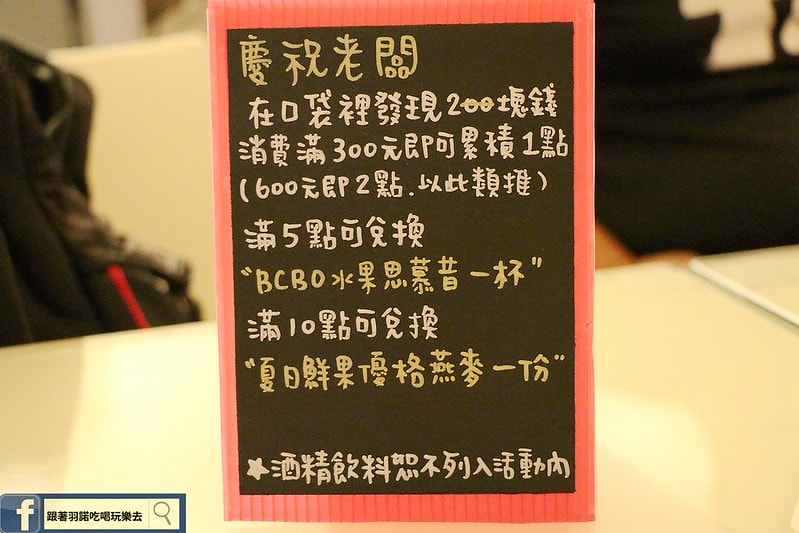 慶祝老闆
在口袋裡發現200塊錢
消費滿300元即可累積1點
(600元即2點.以此類推)
滿5點可兌換
"BCBO水果思慕昔一杯"
滿10點可兌換
"夏日鮮果優格燕麥一份"
★酒精飲料恕不列入活動內
跟著羽諾吃喝玩樂去